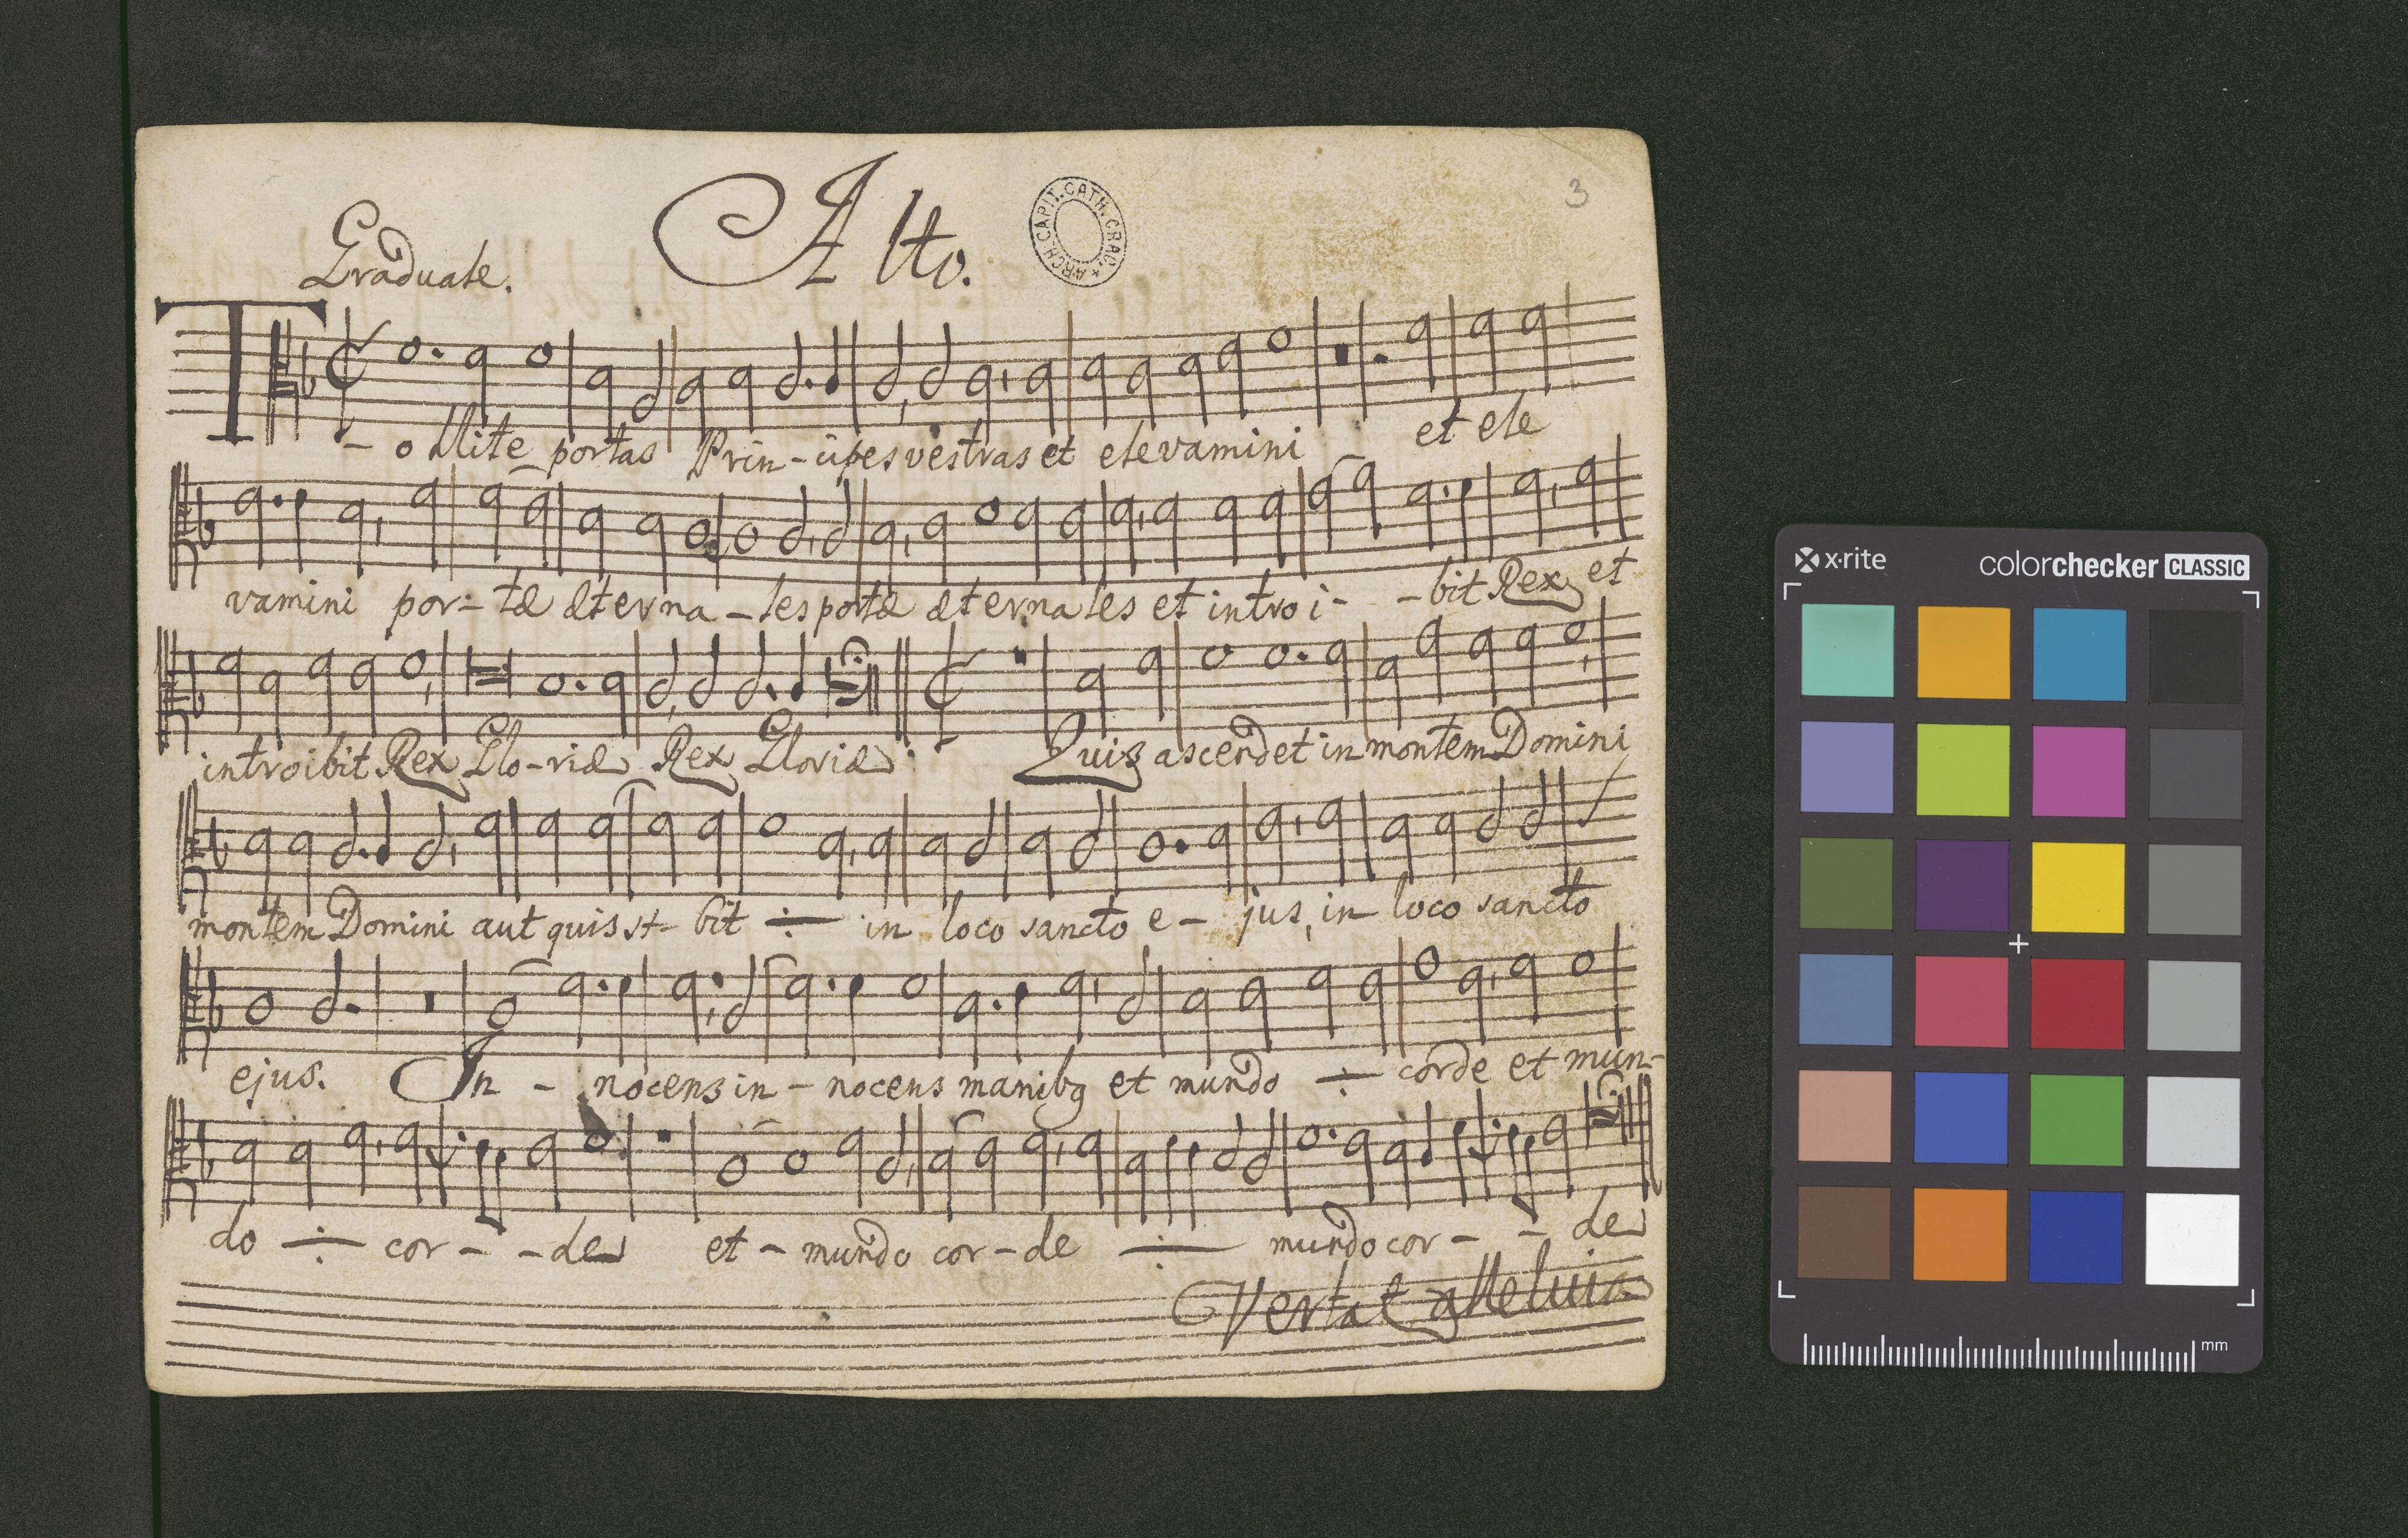 3
Alto.
ARCH. CAPIT. CATH. CRAC. *
Graduale.
T-ollite portas Prin-cipes vestras et elevamini et ele
vamini por-tæ æterna-les portæ æternales et introi- -bit Rex et
introibit Rex Glo-riæ Rex Gloriæ. Quis ascendet in montem Domini
montem Domini aut quis st- bit ÷ in loco sancto e- jus, in loco sancto
ejus. In - nocens in - nocens manibg et mundo ÷ corde et mun-
do ÷ cor- -de et - mundo cor-de ÷ mundo cor- - de
Vertat alleluia
x·rite colorchecker CLASSIC
mm